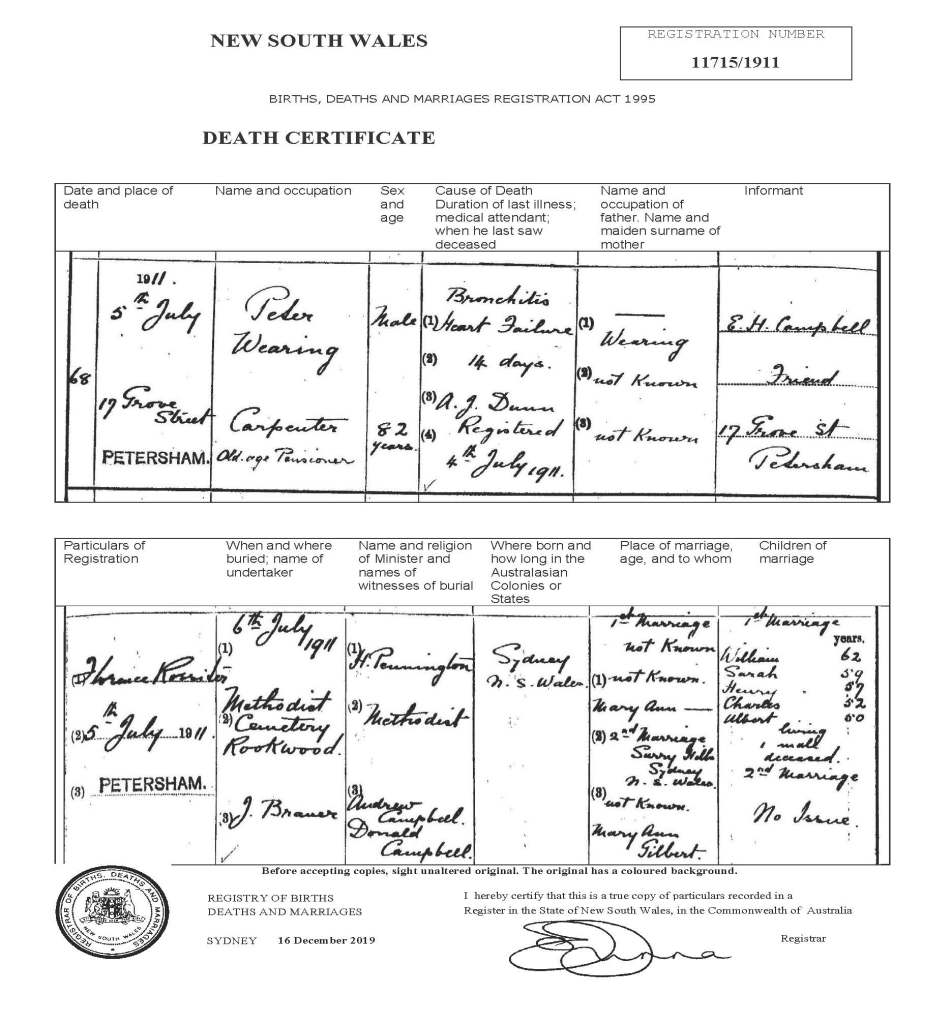 NEW SOUTH WALES
REGISTRATION NUMBER
11715/1911
BIRTHS, DEATHS AND MARRIAGES REGISTRATION ACT 1995
DEATH CERTIFICATE
Date and place of
death
Name and occupation
Sex
and
age
Cause of Death
Duration of last illness;
medical attendant;
when he last saw
deceased
Name and
occupation of
father. Name and
maiden surname of
mother
Informant
68
1911.
5th July
17 Grove
Street
PETERSHAM.
Peter
Wearing
Carpenter
Old age Pensioner
Male
82
years.
Bronchitis
(1) Heart Failure
(2) 14 days.
(3) A. J. Dunn
(4) Registered
4th July 1911.
(1) ——
Wearing
(2) not Known
(3) not Known
E. H. Campbell
Friend
17 Grove St
Petersham
Particulars of
Registration
When and where
buried; name of
undertaker
Name and religion
of Minister and
names of
witnesses of burial
Where born and
how long in the
Australasian
Colonies or
States
Place of marriage,
age, and to whom
Children of
marriage
(1) Florence
(2) 5th July 1911.
(3) PETERSHAM.
6th July
1911
(1)
Methodist
(2) Cemetery
Rookwood.
(3) J. Brauer
(1) H. Pennington
(2) Methodist
(3)
Andrew
Campbell.
Donald
Campbell.
Sydney
N. S. Wales.
1st Marriage
not Known
(1) not Known.
Mary Ann —
(2) 2nd Marriage
Surry Hills
Sydney
N. S. Wales.
(3) not Known.
Mary Ann
Gilbert.
1st Marriage
years.
William 62
Sarah 59
Henry 57
Charles 52
Albert 50
living
1 male
deceased.
2nd Marriage
No Issue.
Before accepting copies, sight unaltered original. The original has a coloured background.
REGISTRAR OF BIRTHS, DEATHS AND MARRIAGES
NEW SOUTH WALES
REGISTRY OF BIRTHS
DEATHS AND MARRIAGES
SYDNEY 16 December 2019
I hereby certify that this is a true copy of particulars recorded in a
Register in the State of New South Wales, in the Commonwealth of Australia
Registrar